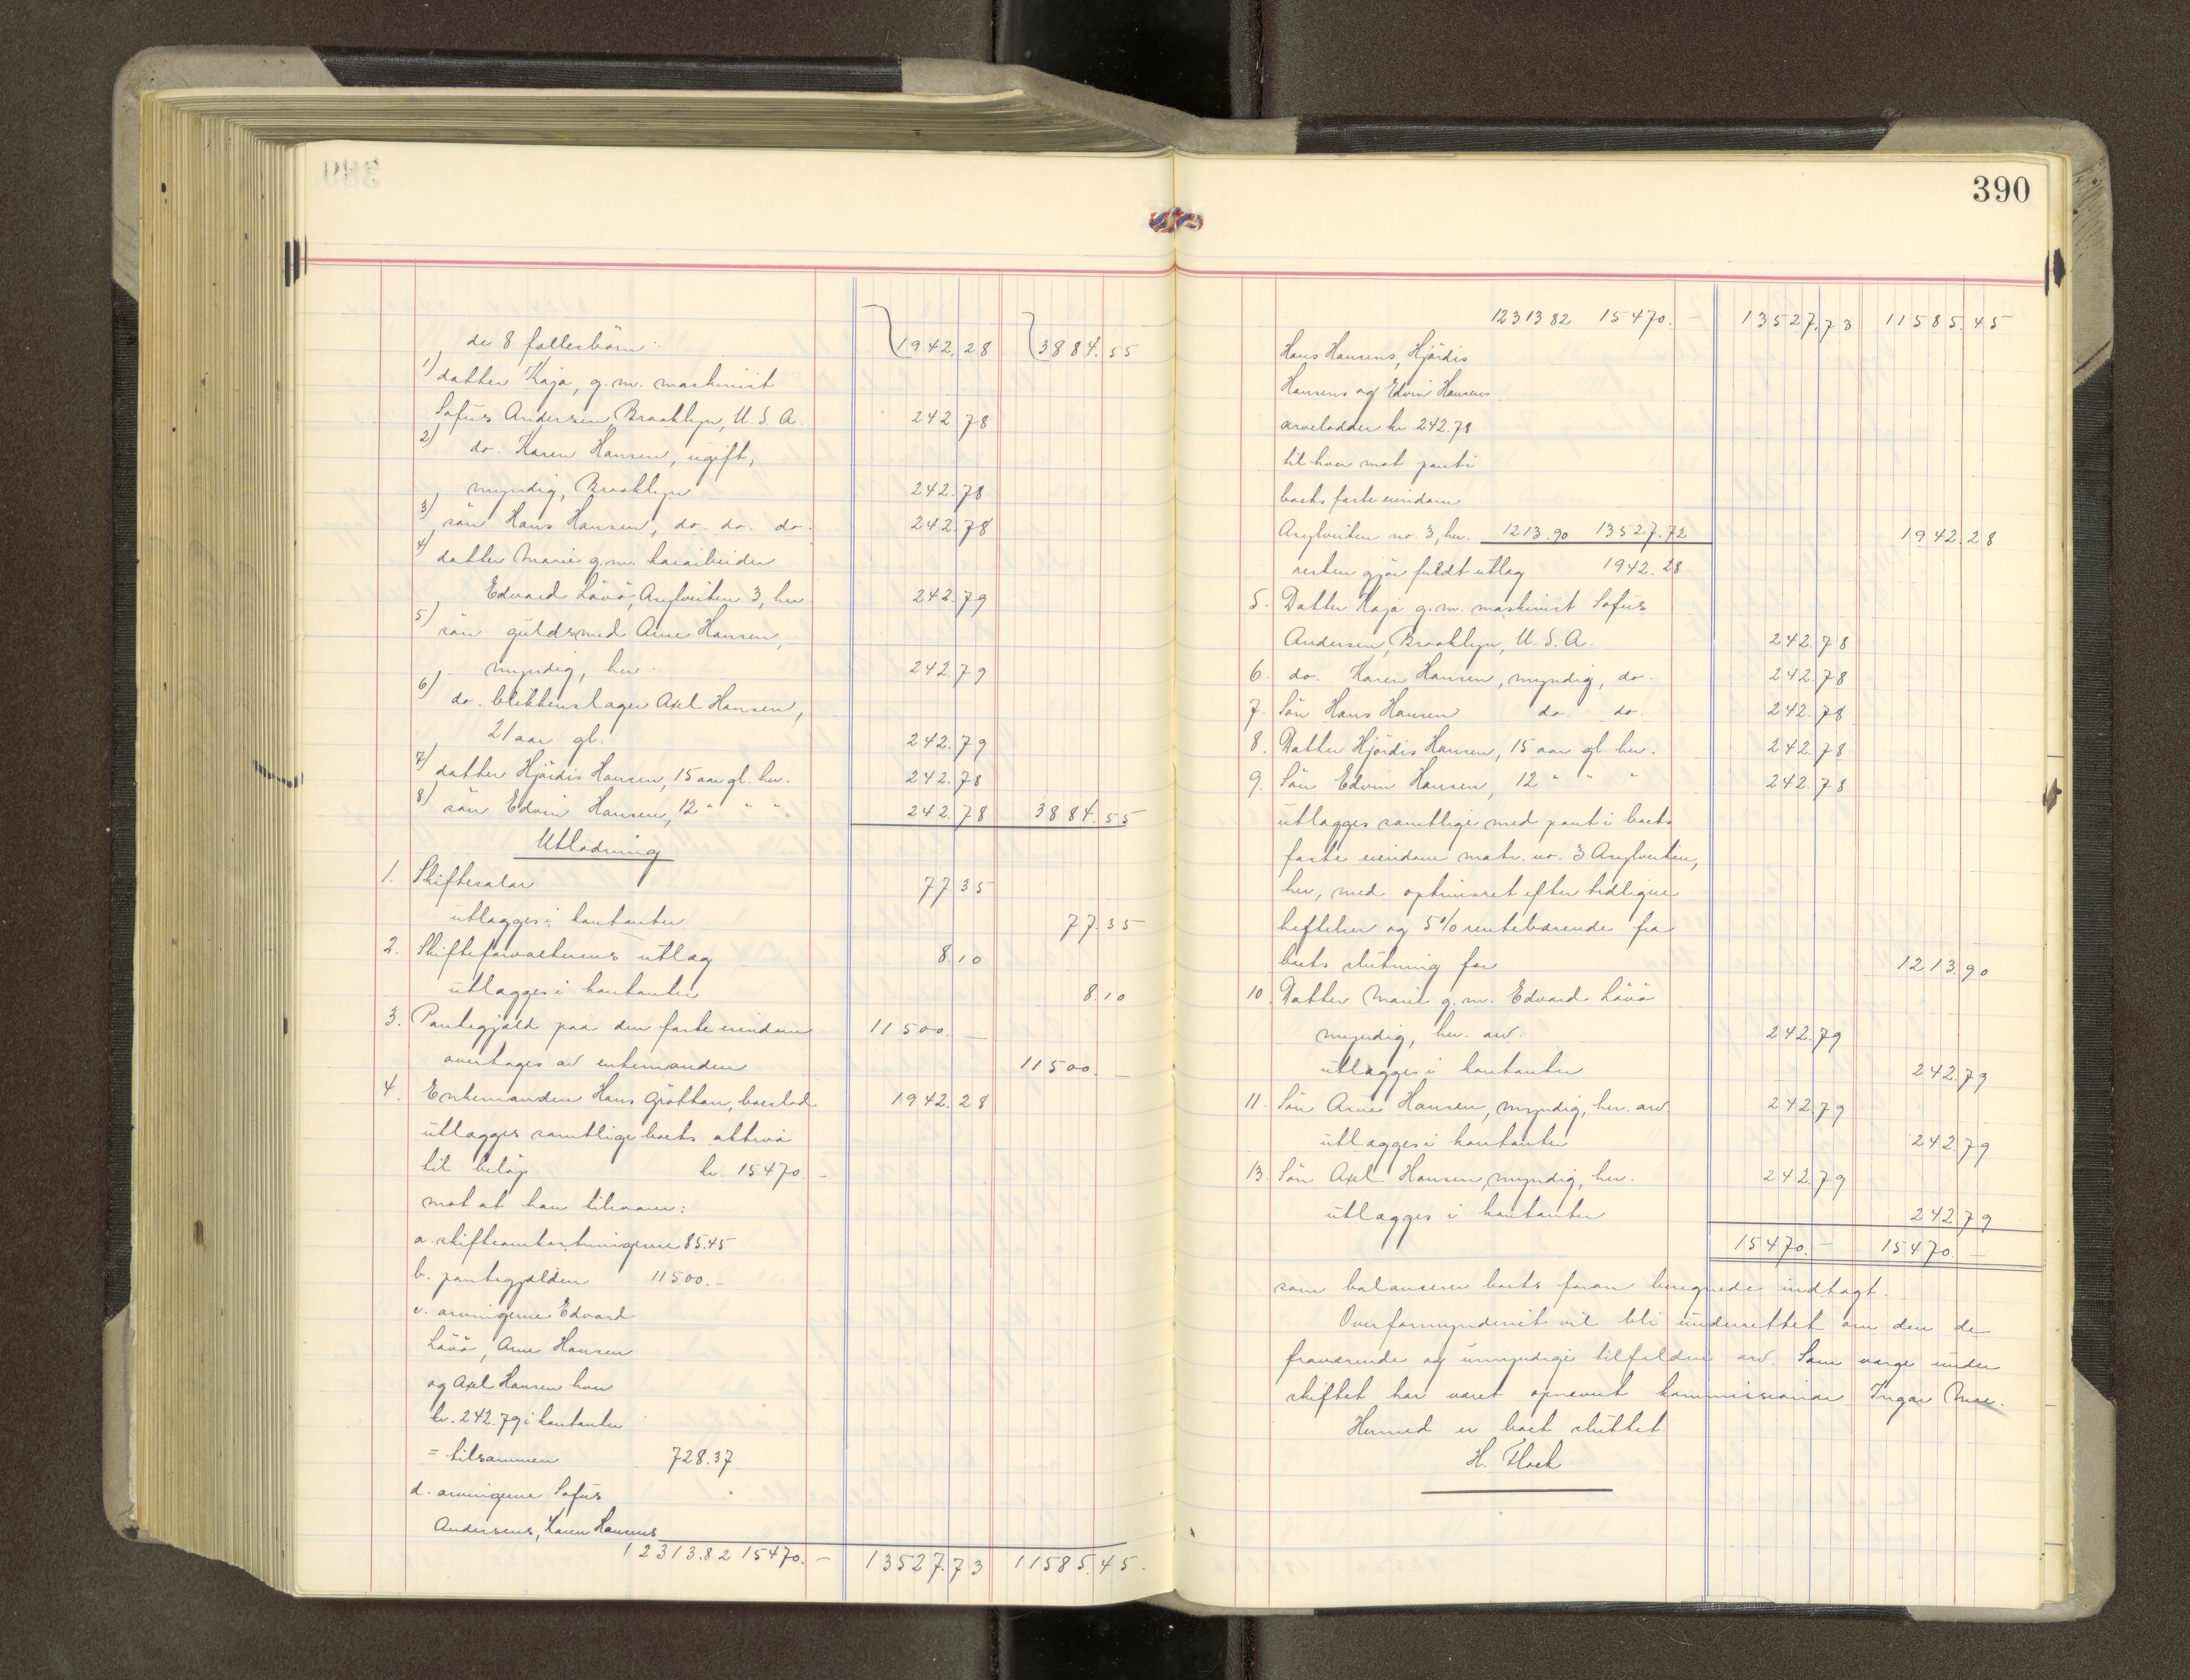 389
de 8 fællesbörn: 1942.28 3884.55
1) datter Kaja, g.m. maskinist
Sofus Andersen, Brooklyn, U.S.A. 242.78
2) do. Karen Hansen, ugift,
myndig, Brooklyn 242.78
3) sön Hans Hansen, do. do. do. 242.78
4) datter Marie g.m. havarbeider
Edvard Lövö, Asylveiten 3, her 242.79
5) sön guldsmed Arne Hansen,
myndig, her 242.79
6) do. blikkenslager Axel Hansen,
21 aar gl. 242.79
7) datter Hjördis Hansen, 15 aar gl. her. 242.78
8) sön Edvin Hansen, 12 " " " 242.78 3884.55
Utlodning
1. Skiftesalær 77.35
utlægges i kontanter 77.35
2. Skifteforvalterens utlæg 8.10
utlægges i kontanter 8.10
3. Pantegjæld paa den faste eiendom 11500.–
overtages av enkemanden 11500.–
4. Enkemanden Hans Gröttan, boeslod 1942.28
utlægges samtlige boets aktiva
til belöp kr. 15470.–
mot at han tilsvarer:
a. skifteomkostningerne 85.45
b. pantegjælden 11500.–
c. arvingerne Edvard
Lövö, Arne Hansen
og Axel Hansen hver
kr. 242.79 i kontanter
= tilsammen 728.37
d. arvingerne Sofus
Andersens, Karen Hansens
12313.82 15470.– 13527.73 11585.45
390
12313 82 15470.– 13527.73 11585.45
Hans Hansens, Hjördis
Hansens og Edvin Hansens
arvelodder kr. 242.78
til hver mot pant i
boets faste eiendom
Asylveiten no. 3, her. 1213.90 13527.72 1942.28
resten gjör fuldt utlæg 1942.28
5. Datter Kaja g.m. maskinist Sofus
Andersen, Brooklyn, U.S.A. 242.78
6. do. Karen Hansen, myndig, do. 242.78
7. Sön Hans Hansen do. do. 242.78
8. Datter Hjördis Hansen, 15 aar gl. her. 242.78
9. Sön Edvin Hansen, 12 " " " 242.78
utlægges samtlige med pant i boets
faste eiendom matr. no. 3 Asylveiten,
her, med optrinsret efter tidligere
heftelser og 5% rentebærende fra
boets slutning for 1213.90
10. Datter Marie g.m. Edvard Lövö
myndig, her. arv. 242.79
utlægges i kontanter 242.79
11. Sön Arne Hansen, myndig, her. arv. 242.79
utlægges i kontanter 242.79
13. Sön Axel Hansen, myndig, her. 242.79
utlægges i kontanter 242.79
15470.– 15470.–
som balanserer boets foran beregnede indtægt.
Overformynderiet vil bli underrettet om den de
fraværende og umyndige tilfaldne arv. Som værge under
skiftet har været opnævnt kommissionær Ingar Moe.
Hermed er boet sluttet.
H. Flock